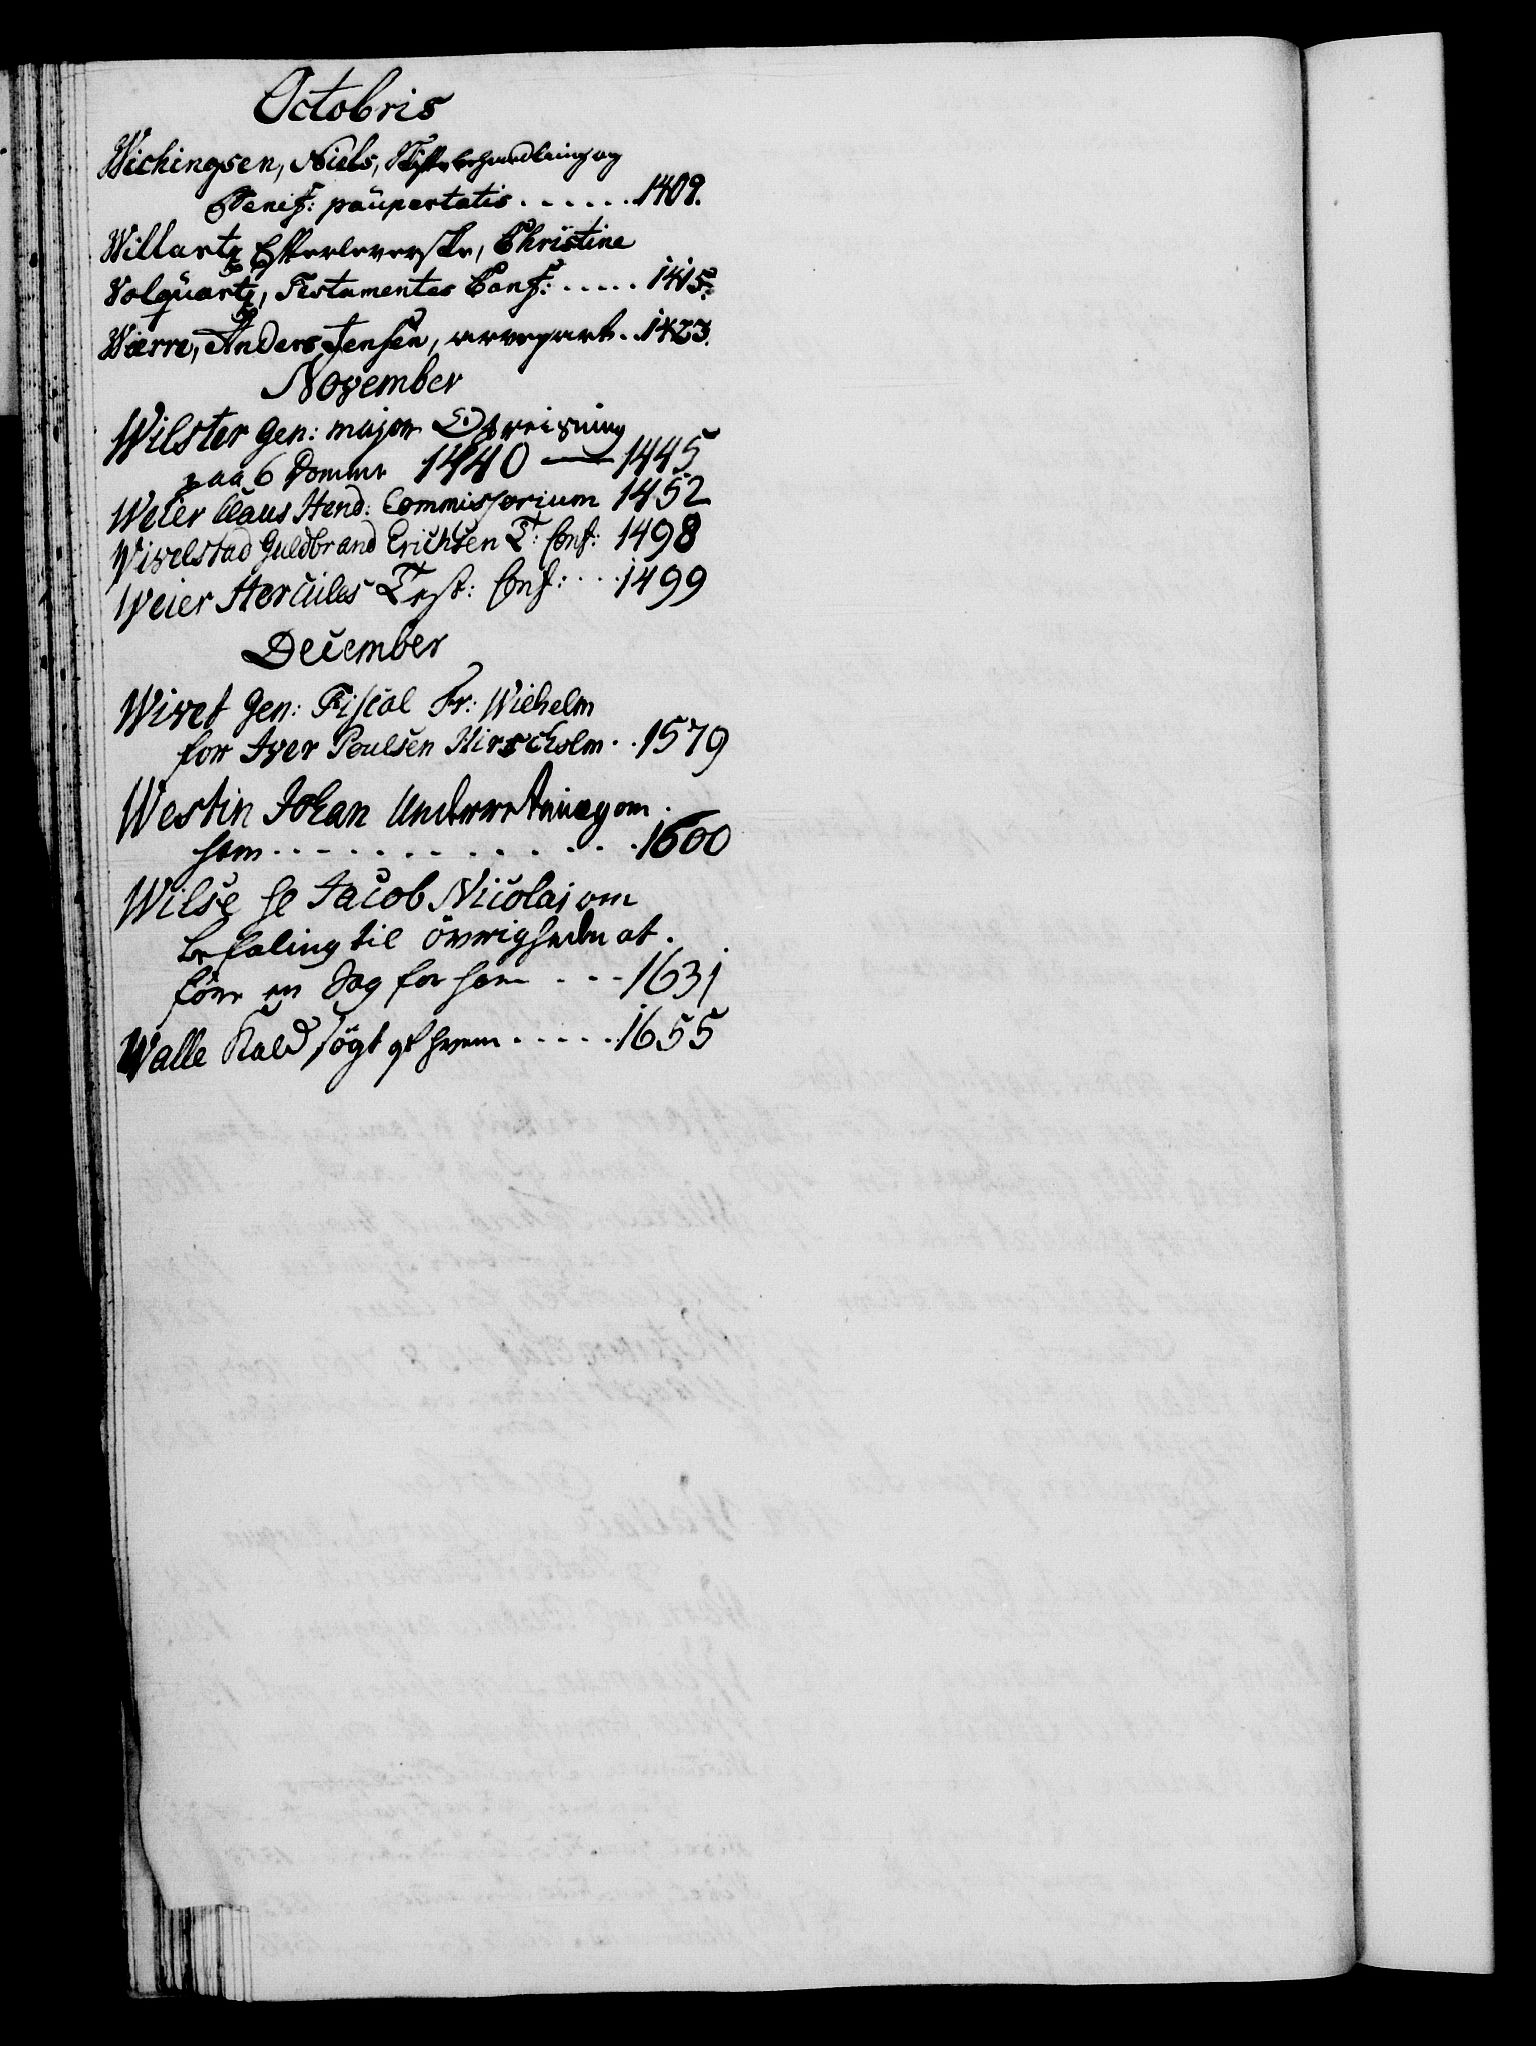 Octobris
Wichingsen, Niels, Skiftebehandling og
Benif: paupertatis . . . . . . 1409.
Willartz Efterleverske, Christine
Volquartz, Testamentes Conf: . . . . . 1415.
Wærre, Anders Jensen, arvepart . . 1423.
November
Wilster Gen: major Opreisning
paa 6 Domme 1440 — 1445
Weier Claus Hend: Commissorium 1452
Wivelstad Guldbrand Erichsen T: Conf: 1498
Weier Hercules Test: Conf: . . . 1499
December
Wivet Gen: Fiscal Fr: Wilhelm
for Iver Poulsen Hirscholm . . 1579
Westin Johan Underretning om
ham . . . . . . . . . . . . . . 1600
Wilse Hr Jacob Nicolai om
befaling til övrigheden at
före en Sag for ham . . . 1631
Walle Kald søgt af hvem . . . . . 1655